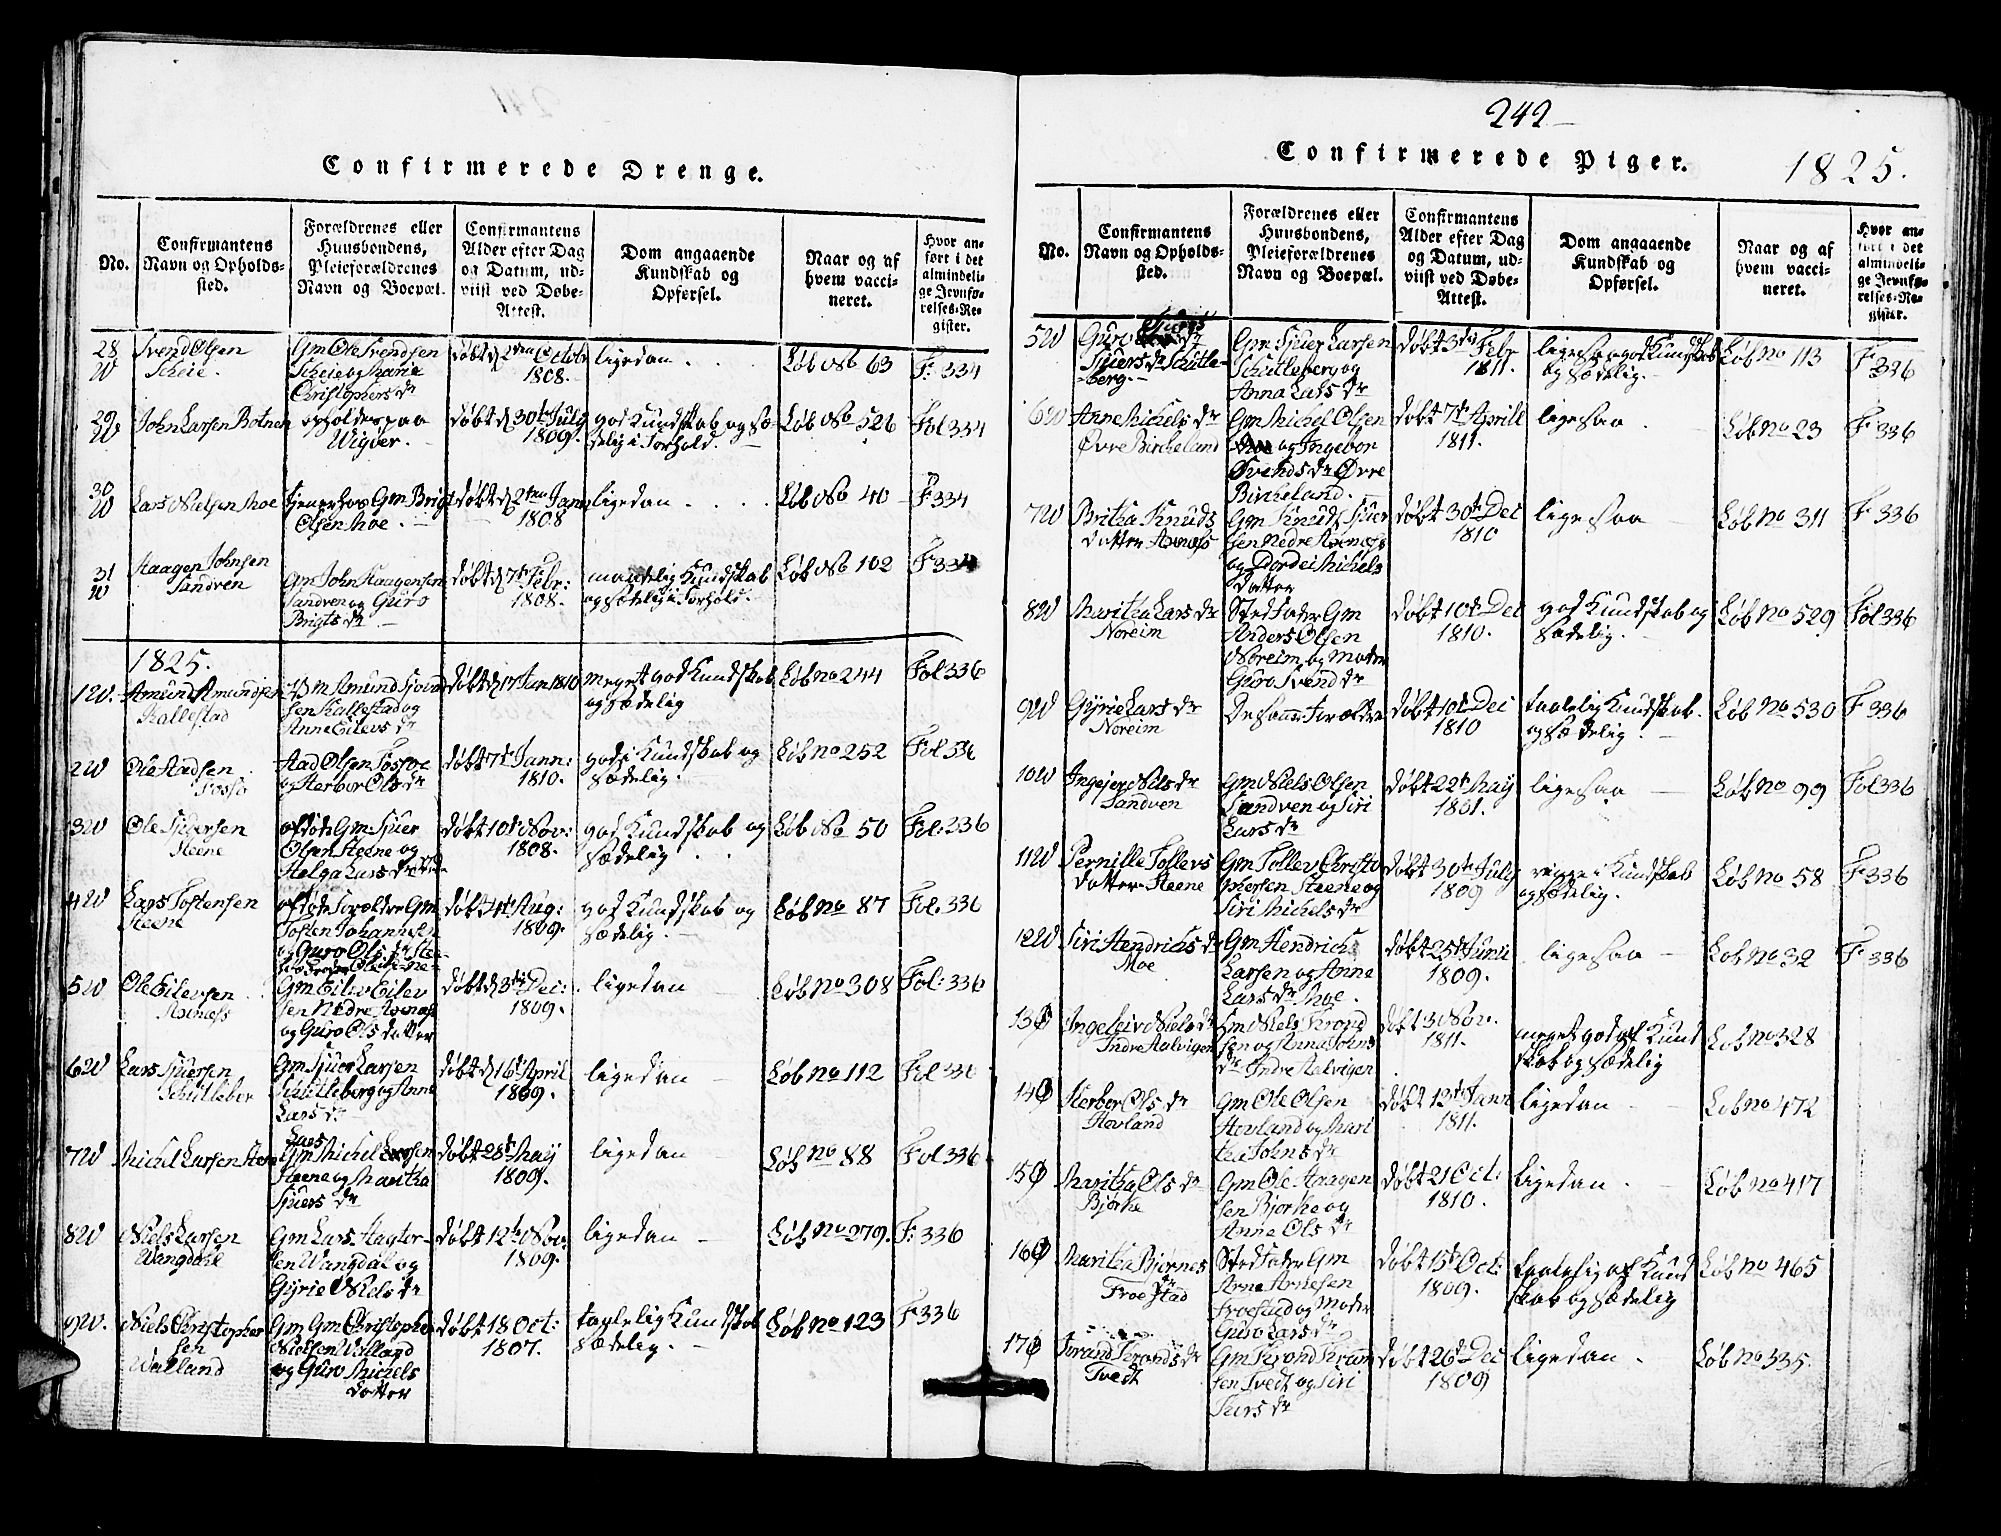 242
Confirmerede Drenge.
No.
Confirmantens
Navn og Opholds-
sted.
Forældrenes eller
Huusbondens,
Pleieforældrenes
Navn og Boepæl.
Confirmantens
Alder efter Dag
og Datum, ud-
viist ved Døbe-
Attest.
Dom angaaende
Kundskab og
Opførsel.
Naar og af
hvem vacci-
neret.
Hvor an-
ført i det
almindeli-
ge Jevnfø-
relses-Re-
gister.
28
W
Svend Olsen
Scheie.
Gm Ole Svendsen
Scheie og Marie
Christophers dr
døbt d 2den Octobr
1808.
ligedan
Løb No 63
F: 334
29
W
John Larsen Botnen
opholder paa
Wigver.
døbt d 30t July
1809.
god Kundskab og Sæ-
delig i Forhold.
Løb No 526
Fol 334
30
W
Lars Nielsen Moe
tjener hos Gm Brigt
Olsen Moe.
døbt d 2den Jann
1808
ligedan
Løb No 40
F 334
31
W
Haagen Johnsen
Sandven
Gm John Haagensen
Sandven og Guro
Brigts dr
døbt d 7t Febr:
1808.
maadelig Kundskab
og Sædelig i Forhold.
Løb No 102
F 334
1825.
1 W.
Amund Amundsen
Kallestad
sen Kallestad og
Anne Eilevs dr
døbt d 17 Jan 1810
meget god Kundskab
og Sædelig
Løb no 244
Fol 336
2 W
Ole Aadsen
Fosso
Aad Olsen Fosso
og Herbor Ols dr
døbt 7t Jann:
1810.
god i Kundskab og
Sædelig.
Løb no 252
Fol 336
3 W
Ole Sjursen
Steene
afdøde Gm Sjuer
Olsen Steene og
Helga Lars dr
døbt 10t Nov:
1808.
god Kundskab og
Sædelig
Løb No 50
Fol: 236
4 W
Lars Tostensen
Steene
afdøde Forældre Gm
Tosten Johannesen
og Guro Ols dr
døbt 4t Aug:
1809.
god Kundskab og
Sædelig.
Løb no 87
Fol. 336
5 W
Ole Eilevsen
Axnæss
Gm Eilev Eilev
sen Nedre Axnæss
og Guro Ols datter
døbt d 3die Dec:
1809.
ligedan
Løb no 308
Fol: 336
6 W
Lars Sjursen
Schutleber
Gm Sjuer Larsen
Schutleberg og Anne
Lars dr
døbt d 16t April
1809.
ligedan
Løb no 112
Fol 336
7 W
Michel Larsen Steene
Lars
Gm Michel Larsen
Steene og Maritha
Sjuers dr
døbt 28t May
1809.
ligedan
Løb no 88
Fol 336
8 W
Niels Larsen
Wangdahl
Gm Lars Hagtor-
sen Wangdal og
Gyrie Niels dr
døbt 12t Nov:
1809.
ligedan
Løb no 279.
F: 336
9 W.
Niels Christopher
sen
Walland
Gm Gm Christopher
Nielsen Walland
og Guro Michels
datter
døbt 18 Oct:
1807.
taalelig Kundskab
Sædelig.
Løb no 123
F 336
Confirmerede Piger.
1825.
No.
Confirmantens
Navn og Opholds-
sted.
Forældrenes eller
Huusbondens,
Pleieforældrenes
Navn og Boepæl.
Confirmantens
Alder efter Dag
og Datum, ud-
viist ved Døbe-
Attest.
Dom angaaende
Kundskab og
Opførsel.
Naar og af
hvem vacci-
neret.
Hvor an-
ført i det
almindeli-
ge Jevnfø-
relses-Re-
gister.
5 W
Guro
Sjuers dr Schutle-
berg.
Gm Sjuer Larsen
Schutleberg og
Anna Lars dr
døbt 3die Febr
1811.
ligesaa god Kundskab
og Sædelig.
Løb no 113
F 336
6 W
Anne Michels dr
Øvre Birkeland
Gm Michel Olsen
og Ingebor
Svends dr Øvre
Birkeland.
døbt 7t Aprill
1811.
ligesaa
Løb no 23
F 336
7 W
Britha Knuds
datter Axnæss
Gm Knud Sjuer
sen Nedre Axnæss
og Dordei Michels
datter
døbt 30t Dec
1810
ligesaa
Løb no 311
F 336
8 W
Maritha Lars dr
Noreim
Stedfader Gm
Anders Olsen
Noreim og Moder
Guro Svend dr
døbt 10t Dec
1810.
god Kundskab og
Sædelig.
Løb no 529
Fol 336
9 W
Gyrie Lars dr
Noreim
De samme Forældre
døbt 10t Dec
1810
taalelig Kundskab
og Sædelig.
Løb no 530
F 336
10 W
Ingejer Niels dr
Sandven
Gm Niels Olsen
Sandven og Siri
Lars dr
døbt 22t May
1801.
ligesaa
Løb no 99
Fol 336
11 W
Pernille Tollevs
datter Steene
Gm Tollev Christo
phersen Steene og
Siri Michels dr
døbt 30t July
1809
ringe i Kundskab
og Sædelig.
Løb no 58
F 336
12 W
Siri Hendrichs dr
Moe
Gm Hendrich
Larsen og Anne
Lars dr Moe.
døbt 25t Juni
1809.
ligesaa
Løb no 32
F 336
13 Ø
Ingeleiv Niels dr
Indre Aalvigen
Gm Niels Trond
sen og Anna
dr Indre Aalvigen
døbt 3 Nov.
1811.
meget god af Kund
skab og Sædelig
Løb no 328
14 Ø
Herbor Ols dr
Hovland
Gm Ole Olsen
Hovland og Mari
tha Johns dr
døbt 13t Jann
1811.
ligedan
Løb no 472
15 Ø
Maritha Ols dr
Bjørke
Gm Ole Aagen
sen Bjørke og
Anne Ols dr
døbt 21 Oct:
1810.
ligedan
Løb no 417
16 Ø
Maritha Bjørnes
dr
Froestad
Stedfader Gm
Arne Arnesen
Froestad og Moder
Guro Lars dr
døbt 15t Oct:
1809.
taalelig af Kund
skab og Sædelig
Løb no 465
17 Ø
Torand Tronds dr
Tvedt
Gm Trond Trond
sen Tvedt og Siri
Lars dr
døbt 26t Dec
1809
ligedan.
Løb no 335.